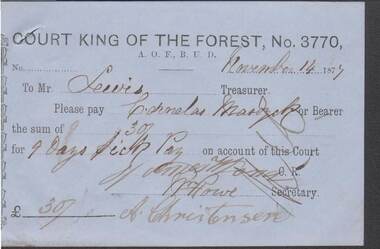 COURT KING OF THE FOREST, No. 3770,
A. O. F., B. U. D.
No. November 14 1877
To Mr Lewis Treasurer.
Please pay Cornelas or Bearer
the sum of 30/
for 9 Days Sick Pay on account of this Court
C. R.
Howe Secretary.
£ 30/ A Christensen